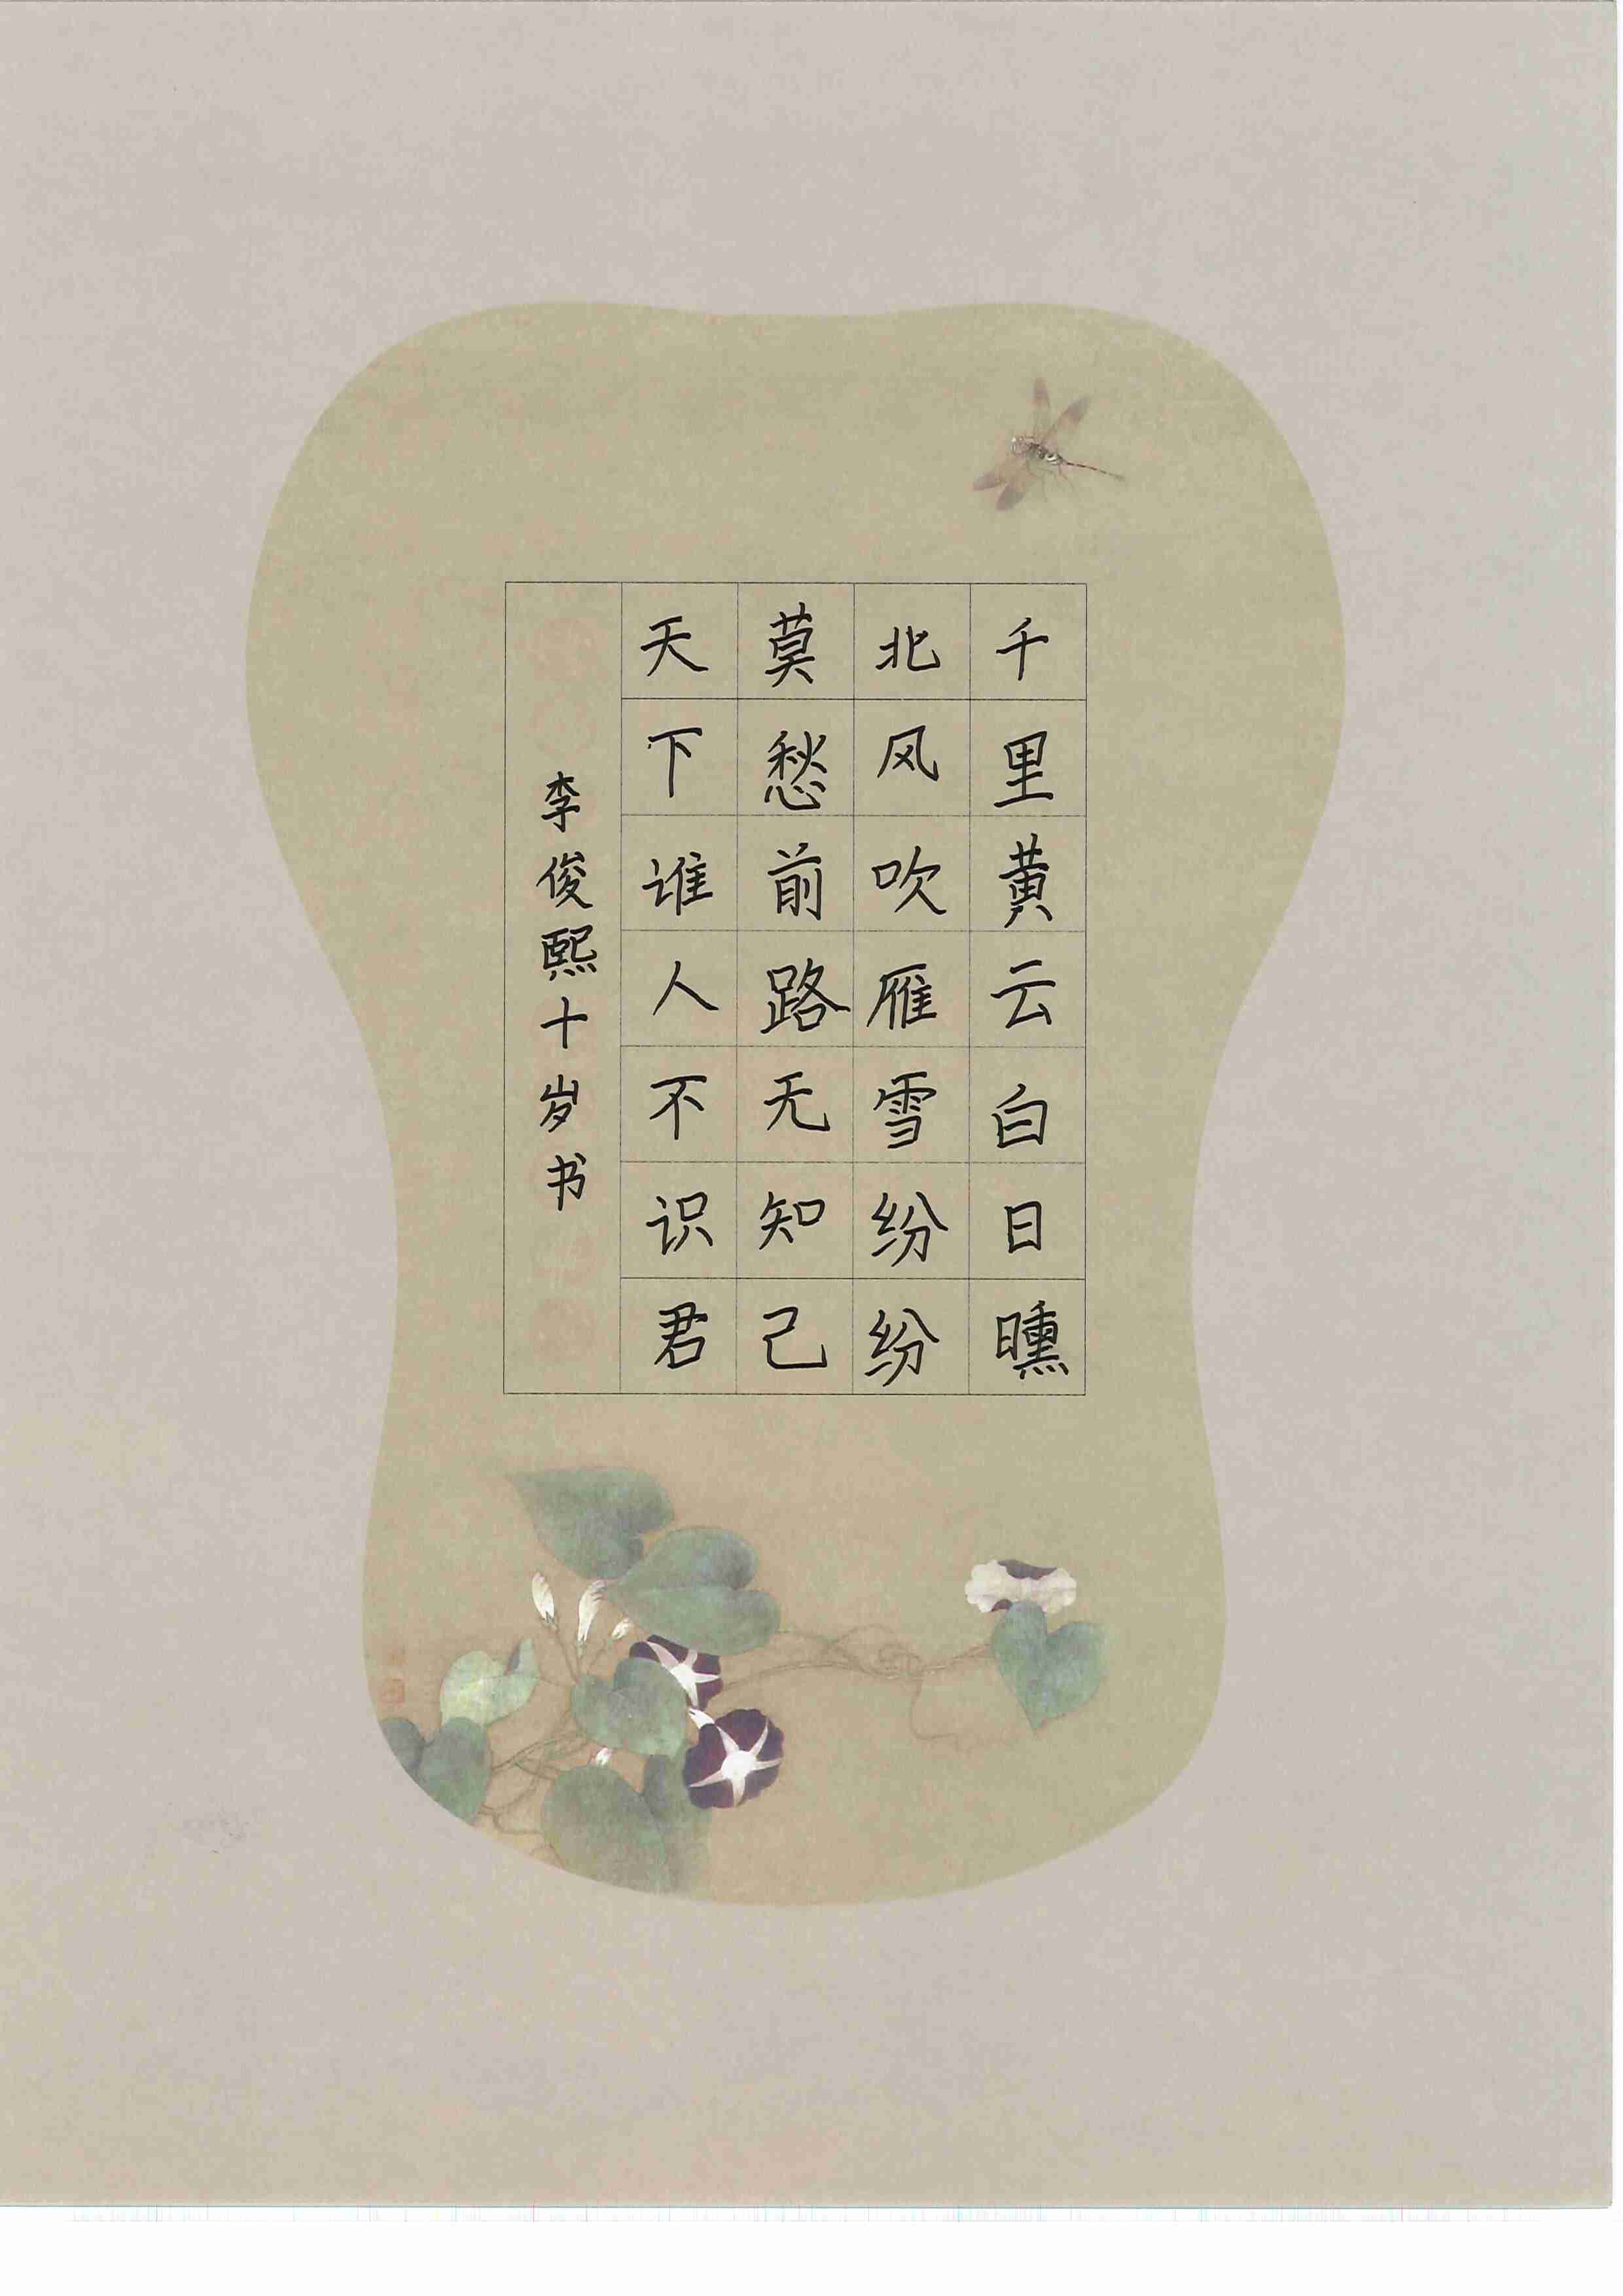 千里黄云白日曛
北风吹雁雪纷纷
莫愁前路无知己
天下谁人不识君
李俊熙十岁书